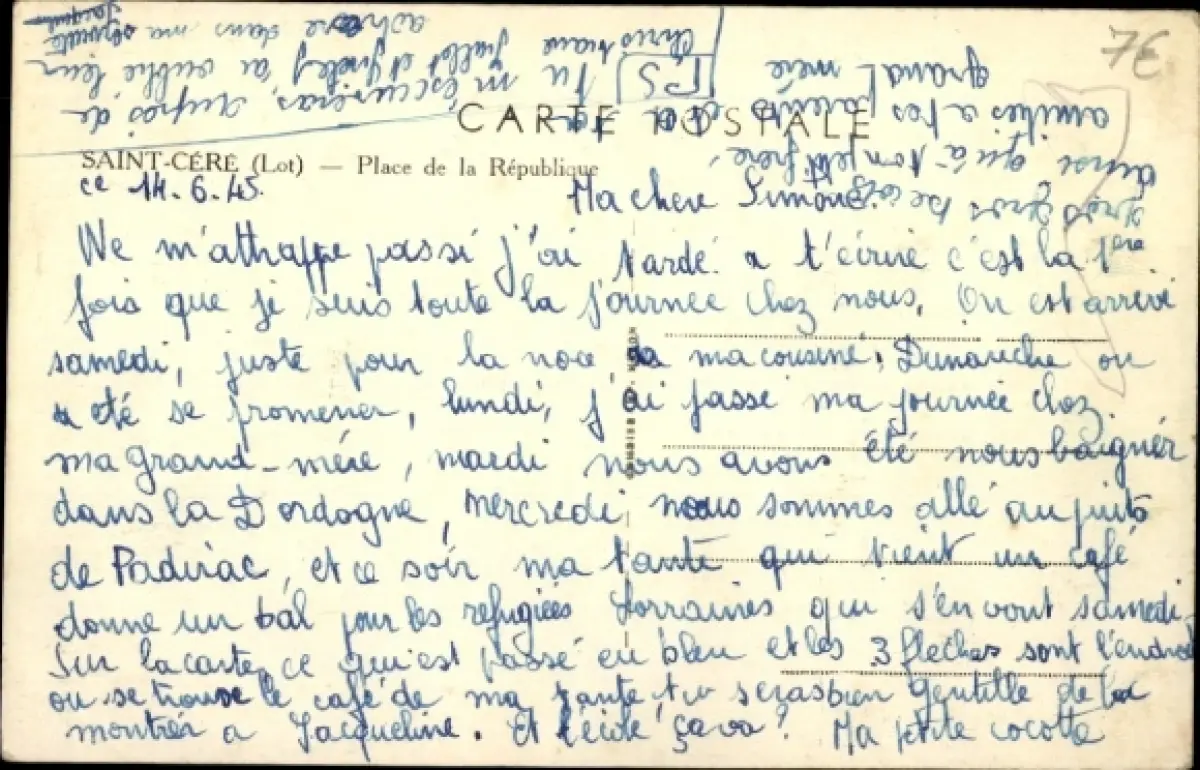 7€
CARTE POSTALE
SAINT-CÉRÉ (Lot) — Place de la République
ce 14.6.45.
Ma chere Simone
Ne m'athrappe passé j'ai tardé a t'écrire c'est la 1ère
fois que je suis toute la journée chez nous. On est arrivé
samedi, juste pour la noce ma cousine, Dimanche on
a eté se promener, lundi, j'ai passé ma journée chez
ma grand-mére, mardi nous avons été nous baignér
dans la Dordogne, Mercredi nous sommes allé au puits
de Padirac, et ce soir ma tante qui tient un café
donne un bal pour les refugiées Lorraines qui s'en vont samedi.
Sur la carte, ce qui est passé en bleu et les 3 fleches sont l'endroit
ou se trouve le café de ma tante, tu seras bien gentille de la
montrér a Jacqueline. Et l'école ça va? Ma petite cocotte
gros gros becots
ainsi qu'à ton petit frère,
amitiés a tes parents et a ta
grand mére
PS) tu
m'escuseras, auprés de
Christiane Juillet et j'ai oublié leur
adresse dans ma serviette
Jacqueline